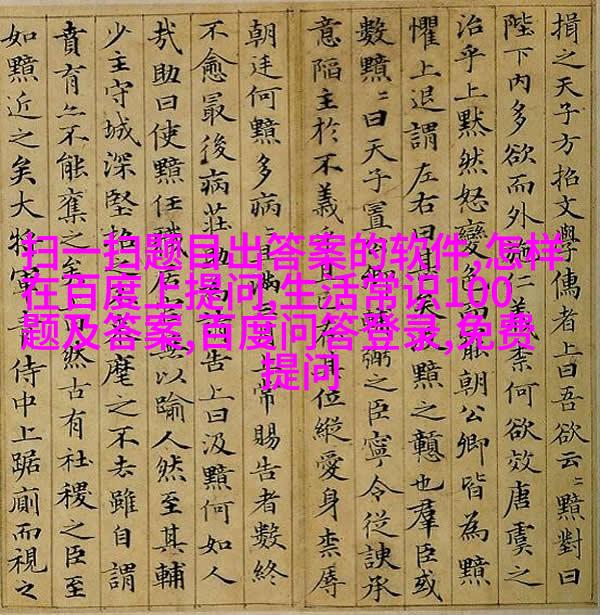 揖之天子方招文學儒者上曰吾欲云〻黯對曰
陛下內多欲而外施仁義柰何欲效唐虞之
治乎上黙然怒變色罷朝公卿皆為黯
懼上退謂左右曰甚矣黯之戇也羣臣或
數黯〻曰天子置公卿輔弼之臣寧令從諛承
意陷主於不義乎且已在其位縱愛身柰辱
朝廷何黯多病〻且滿上常賜告者數終
不愈最後病莊助為告上曰汲黯何如人
哉助曰使黯任職居官無以踰人然至其輔
少主守城深堅招之麾之不去雖自謂
賁育亦不能奪之矣上曰然古有社稷之臣至
如黯近之矣大將軍侍中上踞廁而視之
扫一扫题目出答案的软件,怎样
在百度上提问,生活常识100
题及答案,百度问答登录,免费
提问